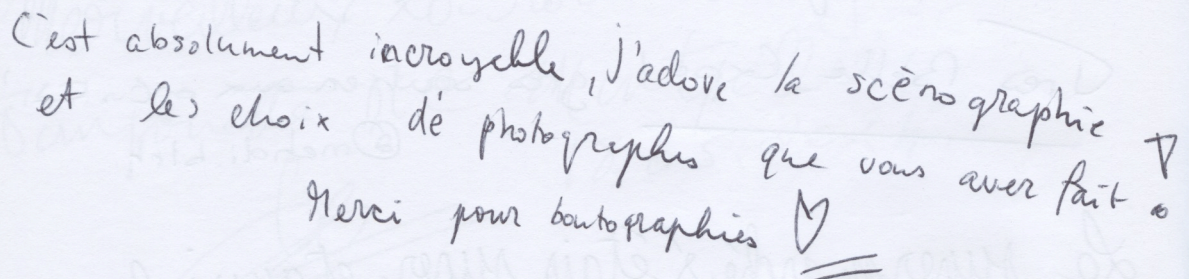 C'est absolument incroyable, J'adore la scènographie
et les choix dé photographes que vous aver fait !
Merci pour boutographies ♡